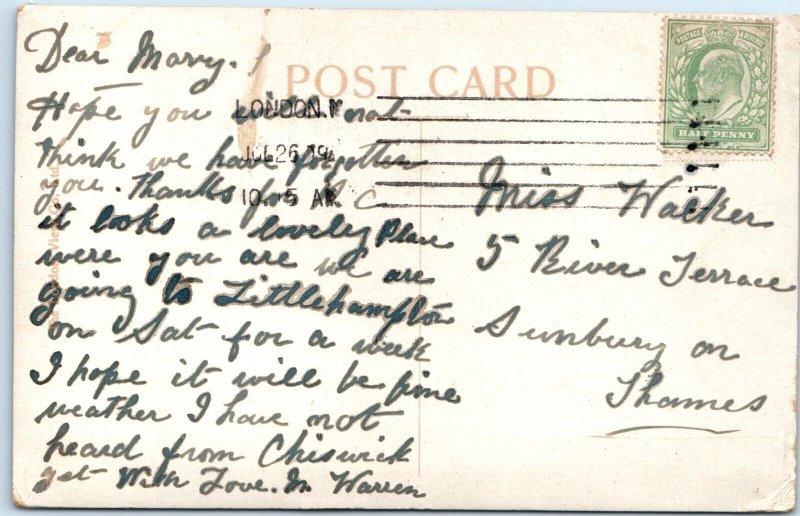 Dear Marry.
Hope you will not
think we have forgotten
you. Thanks for P C
it looks a lovely Place
were you are we are
going to Littlehampton
on Sat for a week
I hope it will be fine
weather I have not
heard from Chiswick
yet With Love. M Warren
POST CARD
LONDON.
JUL 26
AM
POSTAGE & REVENUE
HALF PENNY
Miss Walker
5 River Terrace
Sunbury on
Thames